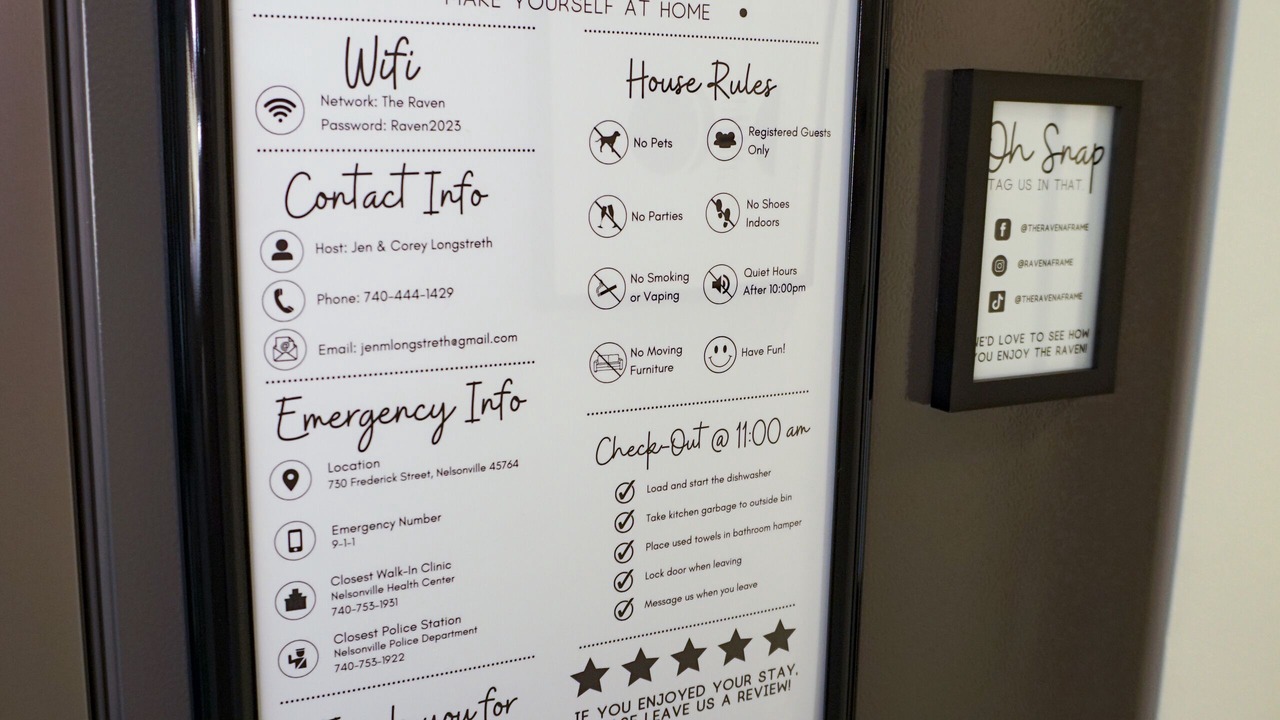 MAKE YOURSELF AT HOME
Wifi
Network: The Raven
Password: Raven2023
Contact Info
Host: Jen & Corey Longstreth
Phone: 740-444-1429
Email: jenmlongstreth@gmail.com
Emergency Info
Location
730 Frederick Street, Nelsonville 45764
Emergency Number
9-1-1
Closest Walk-In Clinic
Nelsonville Health Center
740-753-1931
Closest Police Station
Nelsonville Police Department
740-753-1922
you for
House Rules
No Pets
Registered Guests
Only
No Parties
No Shoes
Indoors
No Smoking
or Vaping
Quiet Hours
After 10:00pm
No Moving
Furniture
Have Fun!
Check-Out @ 11:00 am
Load and start the dishwasher
Take kitchen garbage to outside bin
Place used towels in bathroom hamper
Lock door when leaving
Message us when you leave
IF YOU ENJOYED YOUR STAY,
LEAVE US A REVIEW!
Oh Snap
TAG US IN THAT
@THERAVENAFRAME
@RAVENAFRAME
@THERAVENAFRAME
WE'D LOVE TO SEE HOW
YOU ENJOY THE RAVEN!